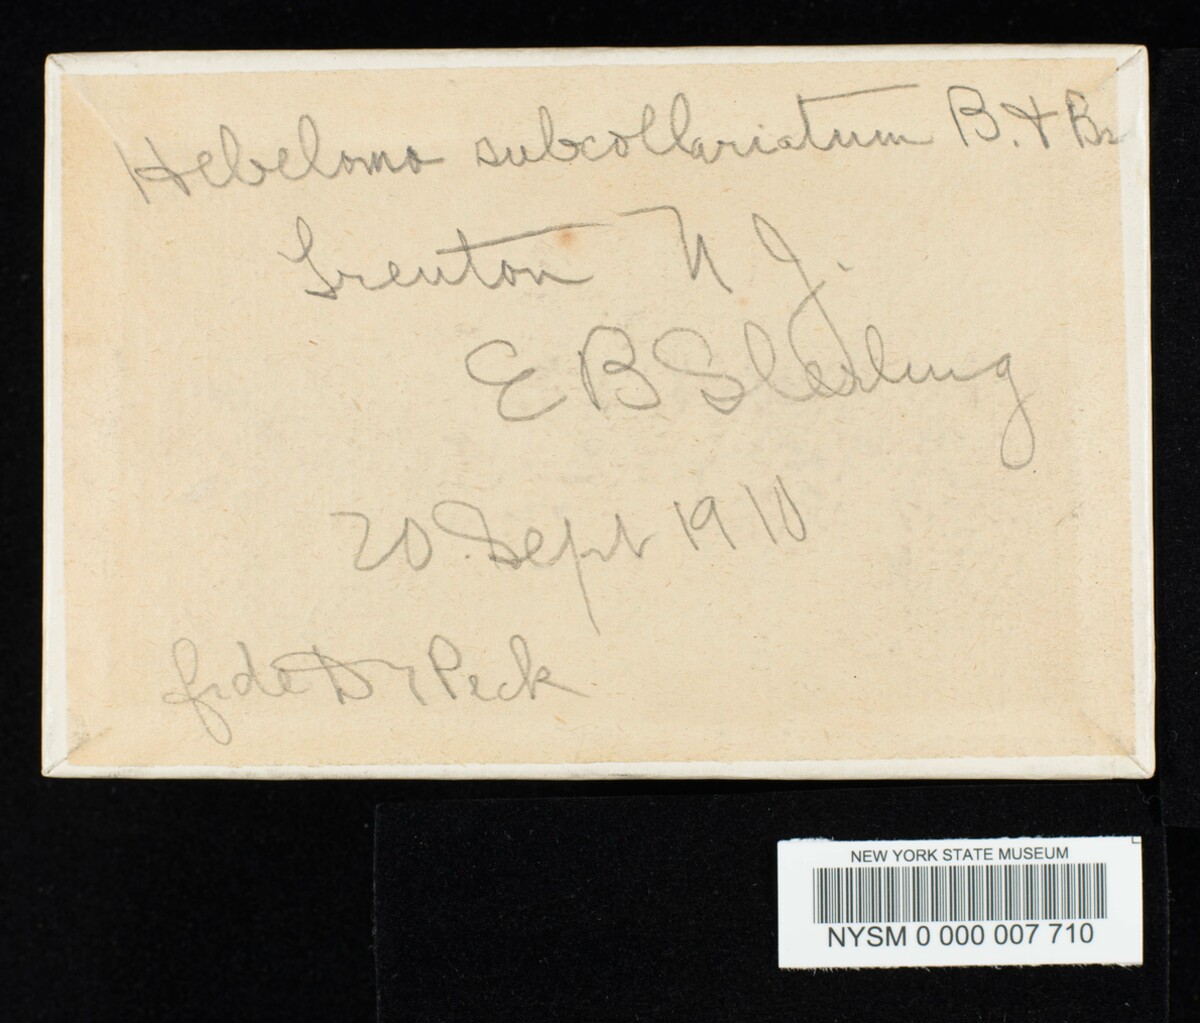 Hebeloma subcollariatum B. & Br
Trenton N J.
E B Sterling
20 Sept 1910
fide Dr Peck
NEW YORK STATE MUSEUM
NYSM 0 000 007 710